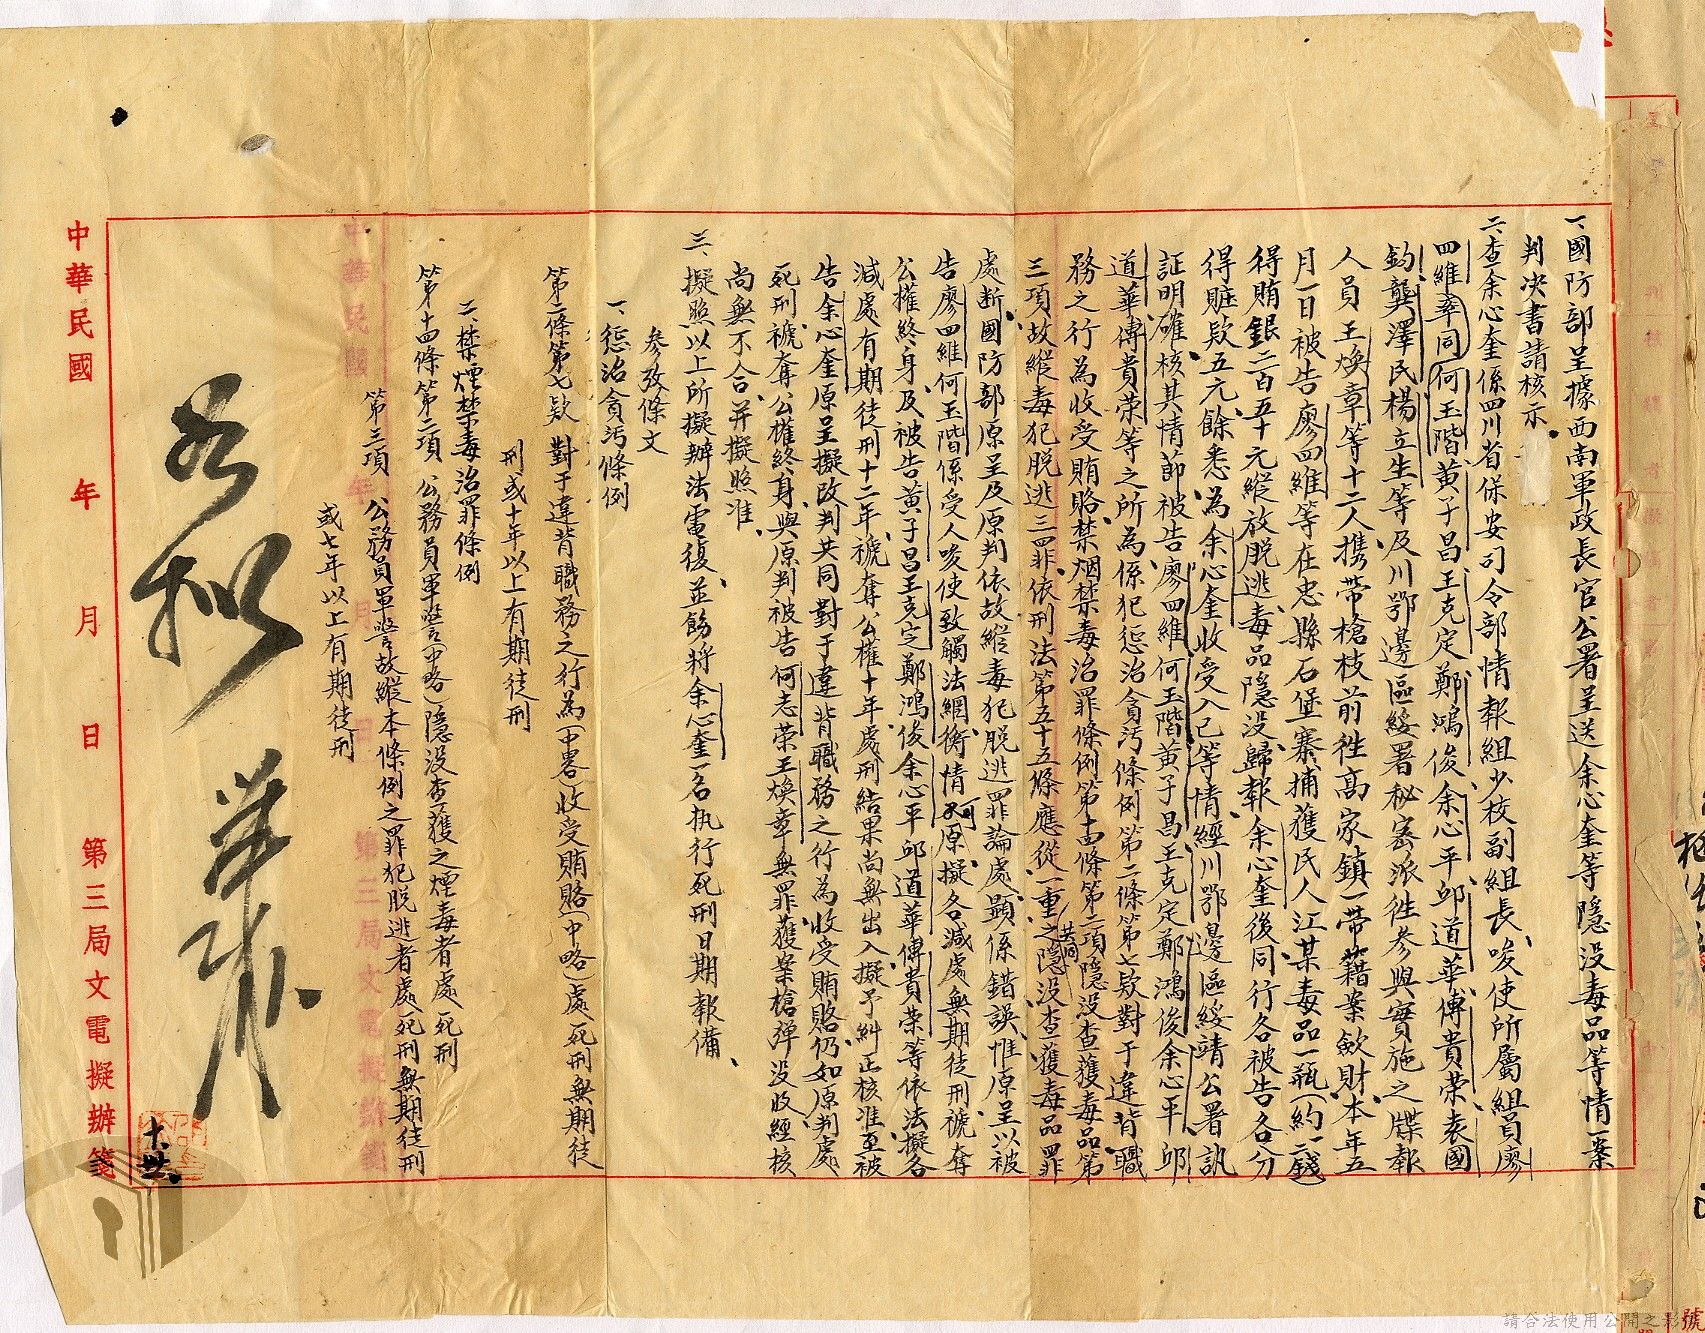 一、國防部呈據西南軍政長官公署呈送余心奎等隱没毒品等情一案
判决書請核示。
二、查余心奎係四川省保安司令部情報組少校副組長、唆使所屬組員廖
四維率同何玉階黄子昌王克定鄭鴻俊、余心平邱道華傅貴荣袁國
鈞龔澤民楊立生等及川鄂邊區綏署秘密派徃參與實施之諜報
人員王煥章等十二人、携帶槍枝前徃高家鎮一帶藉案歛財、本年五
月一日被告廖四維等在忠縣石堡寨捕獲民人江某毒品一瓶(約一錢)
得賄銀二百五十元縱放脱逃、毒品隱没歸報、余心奎後同行各被告各分
得賍欵五元、餘悉為余心奎收受入己等情、經川鄂邊區綏靖公署訊
証明確核其情節被告廖四維何玉階黄子昌王克定鄭鴻俊余心平邱
道華傅貴荣等之所為、係犯惩治貪汚條例第二條第七欵對于違背職
務之行為收受賄賂、禁烟禁毒治罪條例第十四條第二項隱没查獲毒品第
三項故縱毒犯脱逃三四罪、依刑法第五十五條應從一重之共同隱没查獲毒品罪
處断、國防部原呈及原判依故縱毒犯脱逃罪論處、顯係錯誤、惟原呈以被
告廖四維何玉階係受人唆使致觸法網、衡情可原擬各減處無期徒刑褫奪
公權終身、及被告黄子昌王克定鄭鴻俊余心平邱道華傅貴荣等依法擬各
減處有期徒刑十二年、褫奪公權十年、處刑結果尚無出入、擬予糾正核准、至被
告余心奎原呈擬改判共同對于違背職務之行為、收受賄賂、仍如原判處
死刑、褫奪公權終身、與原判被告何志荣王煥章無罪、獲案槍彈没收、經核
尚無不合、并擬照准、
三、擬照以上所擬辦法電復、並飭將余心奎一名执行死刑日期報備、
參攷條文
一、惩治貪汚條例
第二條第七欵 對于違背職務之行為(中畧)收受賄賂(中略)處死刑無期徒
刑或十年以上有期徒刑
二、禁煙禁毒治罪條例
第十四條第二項 公務員軍警(中略)隱没查獲之煙毒者處死刑
第三項 公務員軍警故縱本條例之罪犯脱逃者處死刑無期徒刑
或七年以上有期徒刑
如擬
十、廿六
中華民國 年 月 日 第三局文電擬辦箋
請合法使用公開之影
號